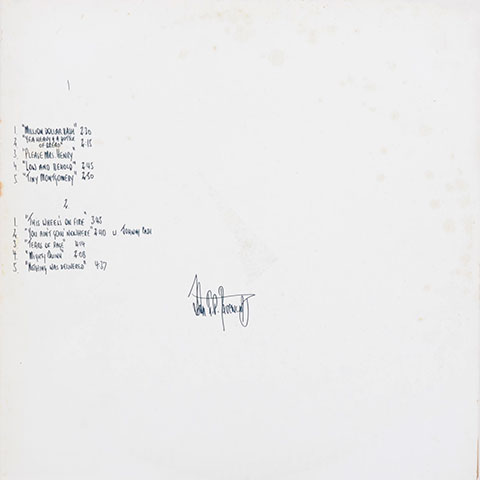 1
1 "MILLION DOLLAR BASH" 2:30
2 "YEA HEAVY & A BOTTLE OF BREAD" 2:15
3 "PLEASE MRS. HENRY"
4 "LOW AND BEHOLD" 2:45
5 "TINY MONTGOMERY" 2:50
2
1 "THIS WHEEL'S ON FIRE" 3:45
2 "YOU AIN'T GOIN' NOWHERE" 2:40 JOHNNY CASH
3 "TEARS OF RAGE" 4:14
4 "MIGHTY QUINN" 2:08
5 "NOTHING WAS DELIVERED" 4:37